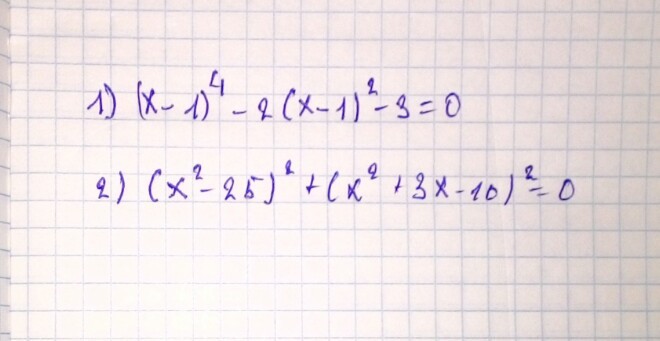 1) (x-1)⁴-2(x-1)²-3=0
2) (x²-25)²+(x²+3x-10)²=0